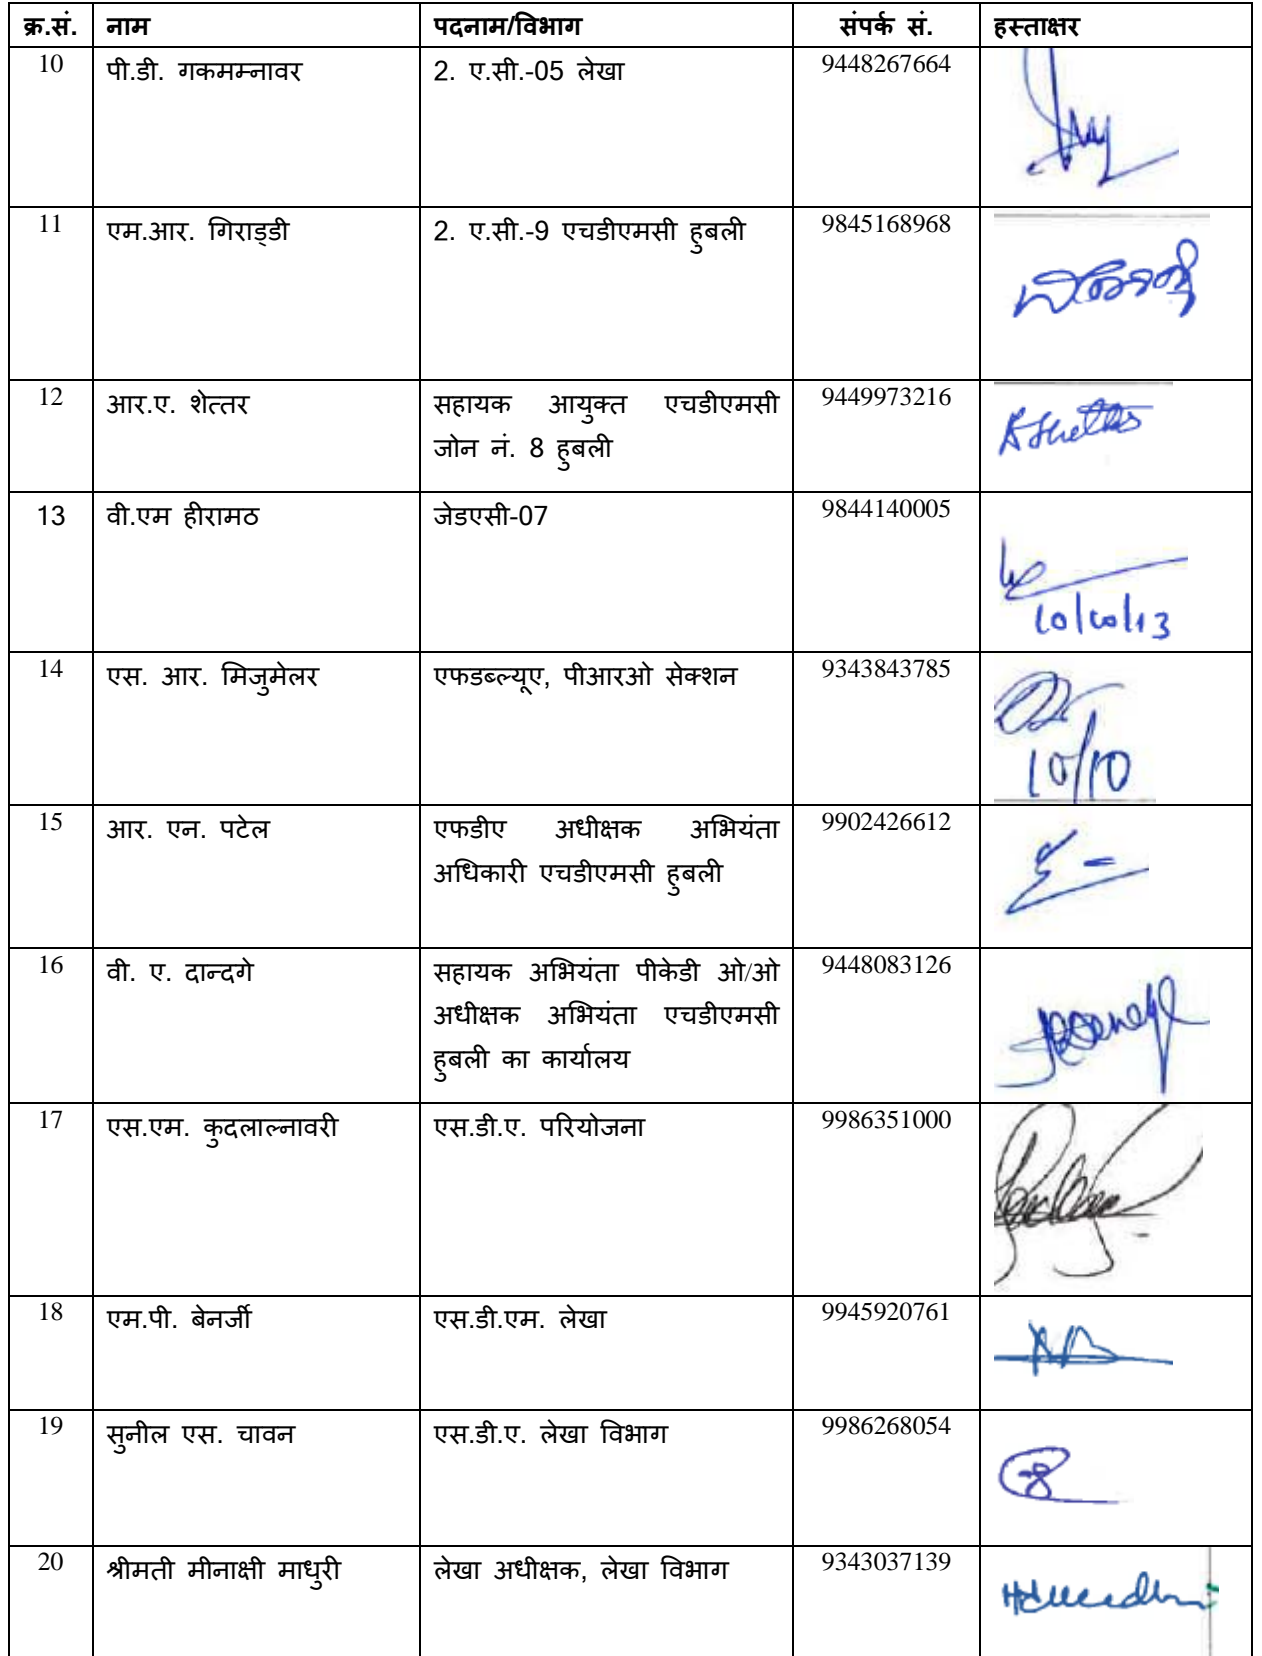 क्र.सं. नाम पदनाम/विभाग संपर्क सं. हस्ताक्षर
10 पी.डी. गकमम्नावर 2. ए.सी.-05 लेखा 9448267664
11 एम.आर. गिराड्डी 2. ए.सी.-9 एचडीएमसी हुबली 9845168968
12 आर.ए. शेत्तर सहायक आयुक्त एचडीएमसी 9449973216
जोन नं. 8 हुबली
13 वी.एम हीरामठ जेडएसी-07 9844140005
10/10/13
14 एस. आर. मिजुमेलर एफडब्ल्यूए, पीआरओ सेक्शन 9343843785
10/10
15 आर. एन. पटेल एफडीए अधीक्षक अभियंता 9902426612
अधिकारी एचडीएमसी हुबली
16 वी. ए. दान्दगे सहायक अभियंता पीकेडी ओ/ओ 9448083126
अधीक्षक अभियंता एचडीएमसी
हुबली का कार्यालय
17 एस.एम. कुदलाल्नावरी एस.डी.ए. परियोजना 9986351000
18 एम.पी. बेनर्जी एस.डी.एम. लेखा 9945920761
19 सुनील एस. चावन एस.डी.ए. लेखा विभाग 9986268054
20 श्रीमती मीनाक्षी माधुरी लेखा अधीक्षक, लेखा विभाग 9343037139